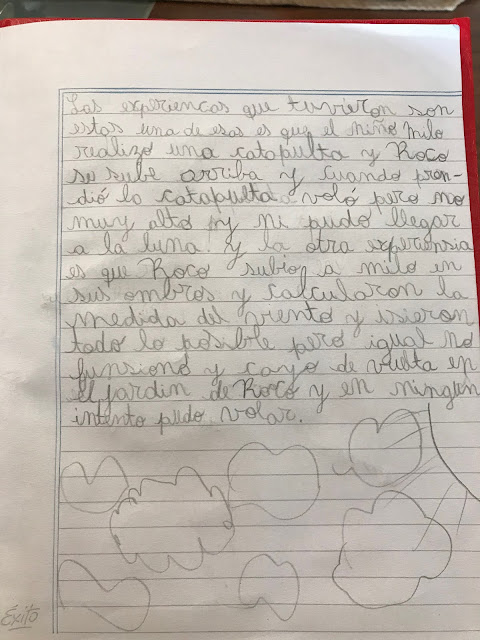 Las experiencas que tuvieron son
estas una de esas es que el niño milo
realizo una catapulta y Roco
se sube arriba y cuando pren-
dió la catapulta voló pero no
muy alto y ni pudo llegar
a la luna y la otra experiensia
es que Roco subio a milo en
sus ombros y calcularon la
medida del viento y isieron
todo lo posible pero igual no
funsionó y cayo de vuelta en
el jardin de Roco y en ningun
intento pudo volar.
Exito